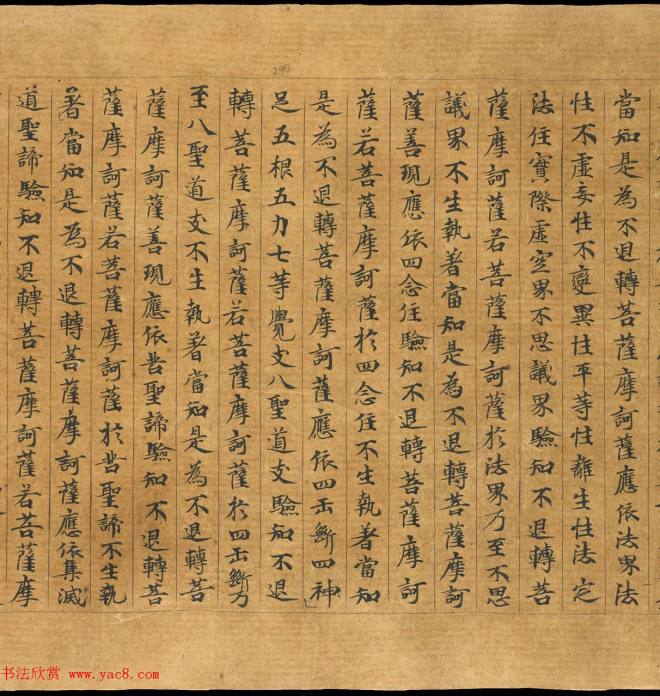 當知是為不退轉菩薩摩訶薩應依法界法
性不虛妄性不變異性平等性離生性法定
法住實際虛空界不思議界驗知不退轉菩
薩摩訶薩若菩薩摩訶薩於法界乃至不思
議界不生執著當知是為不退轉菩薩摩訶
薩善現應依四念住驗知不退轉菩薩摩訶
薩若菩薩摩訶薩於四念住不生執著當知
是為不退轉菩薩摩訶薩應依四正斷四神
足五根五力七等覺支八聖道支驗知不退
轉菩薩摩訶薩若菩薩摩訶薩於四正斷乃
至八聖道支不生執著當知是為不退轉菩
薩摩訶薩善現應依苦聖諦驗知不退轉菩
薩摩訶薩若菩薩摩訶薩於苦聖諦不生執
著當知是為不退轉菩薩摩訶薩應依集滅
道聖諦驗知不退轉菩薩摩訶薩若菩薩摩
书法欣赏 www.yac8.com